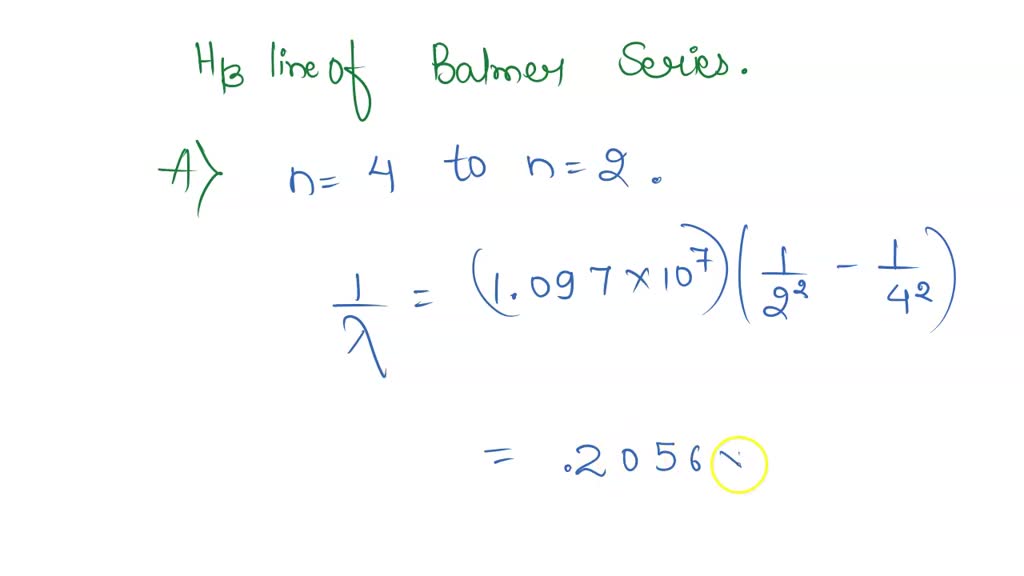 Hβ line of Balmer Series.
A) n= 4 to n=2.
1/λ = (1.097×10⁷)(1/2² - 1/4²)
= .2056×